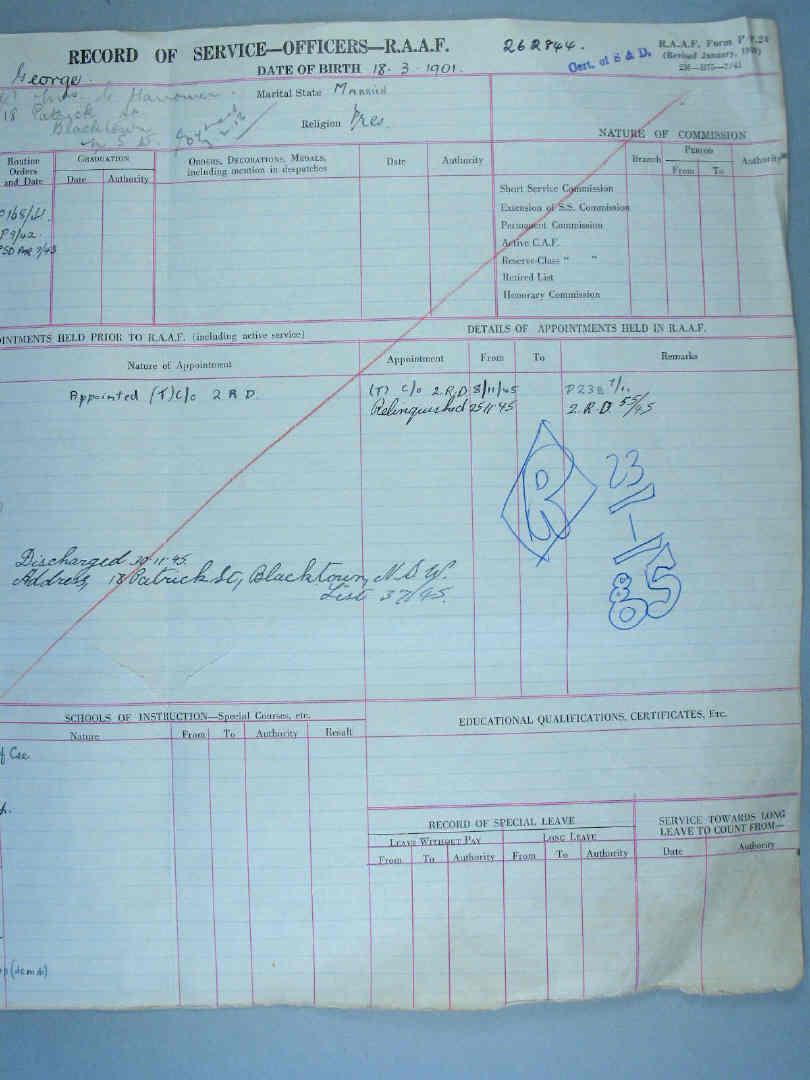 RECORD OF SERVICE—OFFICERS—R.A.A.F.
262844.
R.A.A.F. Form P
(Revised January,
Cert. of S & D.
George.
DATE OF BIRTH 18.3.1901.
Mrs. G Hanower.
18 Patrick St
Blacktown
N.S.W.
Marital State MARRIED
Religion Pres.
NATURE OF COMMISSION
Routine Orders and Date
GRADUATION
Date
Authority
ORDERS, DECORATIONS, MEDALS, including mention in despatches
Date
Authority
Branch
PERIOD
From
To
Authority
Short Service Commission
Extension of S.S. Commission
Permanent Commission
Active C.A.F.
Reserve-Class " "
Retired List
Honorary Commission
P 9/42.
INTMENTS HELD PRIOR TO R.A.A.F. (including active service)
DETAILS OF APPOINTMENTS HELD IN R.A.A.F.
Nature of Appointment
Appointment
From
To
Remarks
Appointed (T) C/O 2 R D.
(T) C/O 2.R.D. 8/11/45
P238 7/11
Relinquished 25.11.45
2.R.D. 55/45
R
23/1/85
Discharged 30.11.45.
Address, 18 Patrick St, Blacktown, N.S.W.
List 37/45.
SCHOOLS OF INSTRUCTION—Special Courses, etc.
EDUCATIONAL QUALIFICATIONS, CERTIFICATES, Etc.
Nature
From
To
Authority
Result
f Cse
RECORD OF SPECIAL LEAVE
SERVICE TOWARDS LONG LEAVE TO COUNT FROM—
LEAVE WITHOUT PAY
LONG LEAVE
From
To
Authority
From
To
Authority
Date
Authority
p (demob)